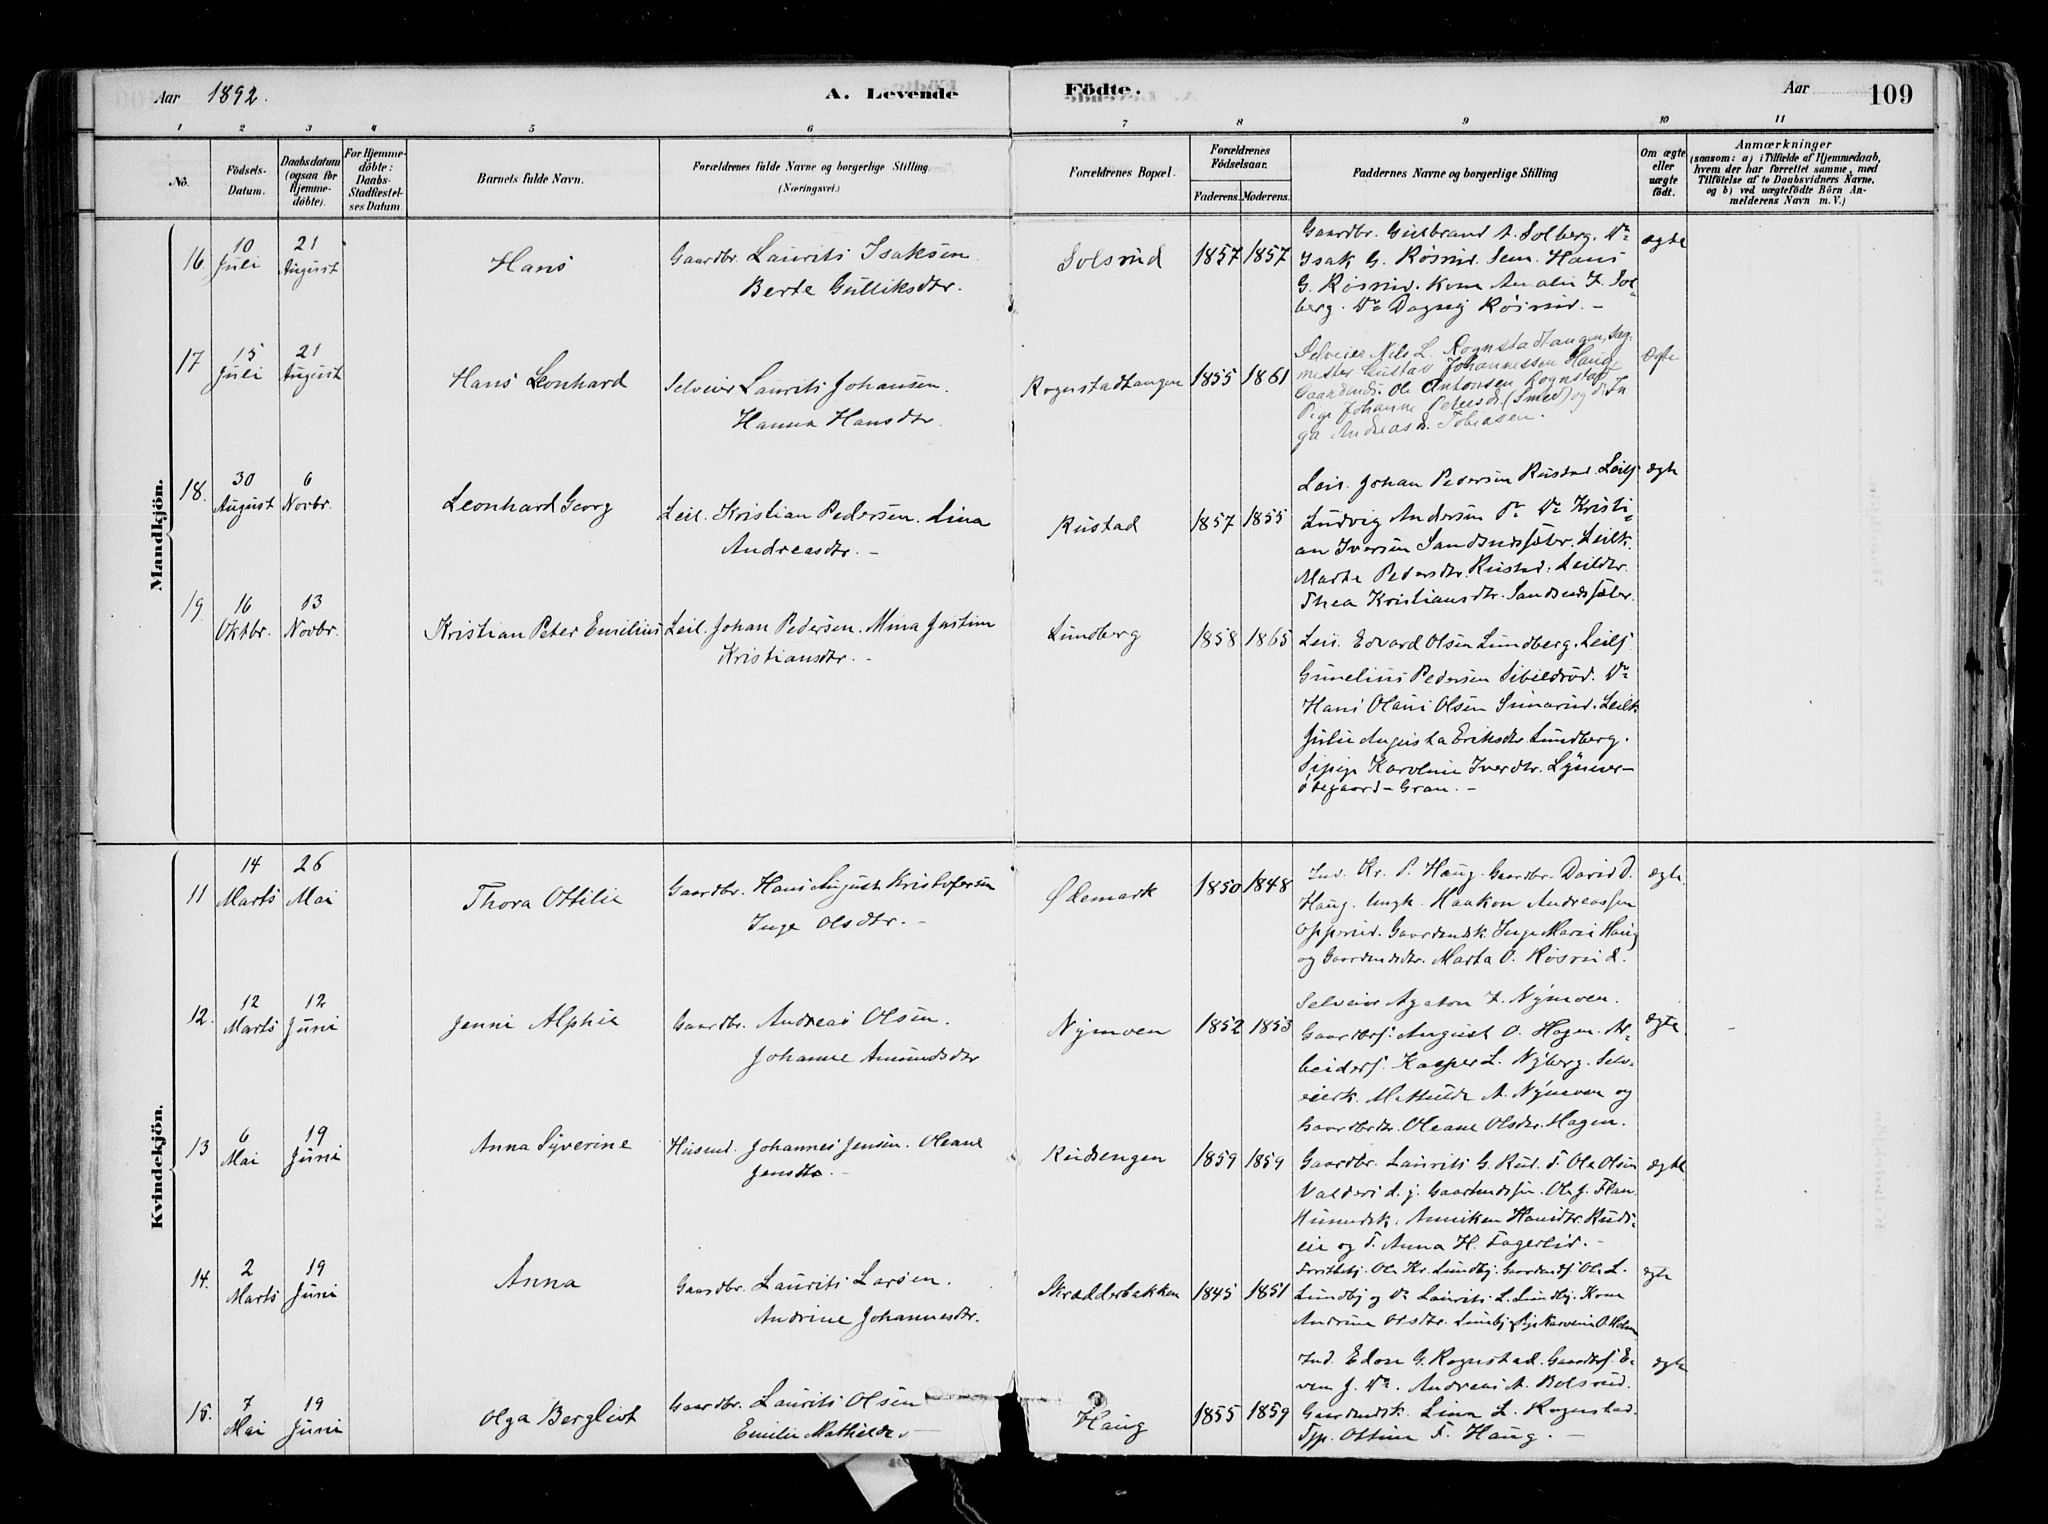 Aar 1892. A. Levende Födte. Aar 109
1 2 3 4 5 6 7 8 9 10 11
No. Födsels-Datum. Daabsdatum (ogsaa for Hjemme-döbte). For Hjemme-döbte: Daabs-Stadfæstel-ses Datum. Barnets fulde Navn. Forældrenes fulde Navne og borgerlige Stilling (Næringsvei.) Forældrenes Bopæl. Forældrenes Födselsaar. Faderens. Moderens. Faddernes Navne og borgerlige Stilling Om ægte eller uægte født. Anmærkninger (saasom: a) i Tilfælde af Hjemmedaab, hvem der har forrettet samme, med Tilföielse af to Daabsvidners Navne, og b) ved uægtefödte Börn An-melderens Navn m. V.)
Mandkjön.
16. 10 Juli 21 August Hans Gaardbr. Laurits Isaksen Berte Gulliksdtr. Solsrud 1857 1857 ægte
Gaardbr. Gulbrand A. Solberg. Do
Isak G. Røsrud. Sem. Hans
G. Røsrud. Kone Amalie I. Sol-
berg. Do Dagny Røsrud. -
17 15 Juli 21 August Hans Leonhard Selveier Laurits Johansen. Hanna Hansdtr. Rognstadtangen 1855 1861 Ægte
Selveier Nils L. Rognstadtangen, Sag-
mester Gustav Johannessen Haug
Gaardmds. Ole Antonsen Rognstad
Pige Johanne Petersd. (Smed) og d. In
ga Andreasd. Tobiasen.
18. 30 August 6 Novbr. Leonhard Georg Leil. Kristian Pedersen. Lina Andreasdtr. - Rustad 1857 1855 ægte
Leil. Johan Pedersen Rustad. Leilf
Ludvig Andersen Do Do Kristi-
an Iversen Sandsundsæter. Leilk.
Marte Pedersdtr. Rustad. Leildtr.
Thea Kristiansdtr. Sandsundsæter.
19. 16 Oktbr. 13 Novbr. Kristian Peter Emilius Leil. Johan Pedersen. Mina Justine Kristiansdtr. - Lundberg 1858 1865
Leil. Edvard Olsen Lundberg. Leilf
Gunelius Pedersen Sibildrød. Do
Hans Olaus Olsen Sunarud. Leilk.
Julie Augusta Eriksdtr. Lundberg.
Karoline Iverdtr.
Gran. -
Kvindekjön.
11 14 Marts 26 Mai Thora Ottilie Gaardbr. Hans August Kristofersen Inge Olsdtr. - Ødemark 1850 1848 ægte.
Ind. Kr. P. Haug. Gaardbr. David D.
Haug. Ungk. Haakon Andreassen
Opperud. Gaardmdsk. Inge Marie Haug
og Gaardmdsdtr. Marta O. Røsrud.
12. 12 Marts 12 Juni Jenni Alphie Gaardbr. Andreas Olsen. Johanne Amundsdtr Nymoen 1852 1853 ægte
Selveier Agaton I. Nymoen.
Gaardbrs. August O. Hagen. Ar-
beiders. Kasper L. Nyberg. Selv-
eierk. Mathilde A. Nymoen og
Gaardbrdtr. Oleane Olsdtr. Hagen.
13 6 Mai 19 Juni Anna Syverine Husmd. Johannes Jensen. Oleane Jensdtr. - Rudsengen 1859 1859 ægte
Gaardbr. Laurits G. Rud. T. Ole Olsen
Gaardmdssøn. Ole J. Flan
Husmdsk. Anniken Hansdtr. Ruds-
eie og T. Anna H. Fagerlid. -
14. 2 Marts 19 Juni Anna Gaardbr. Laurits Larsen. Andrine Johannesdtr. Skrædderbakken 1845 1851 ægte
Ole Kr. Lundby. Gaardmdsf Ole L.
Lundby og Do Laurits L. Lundby. Kone
Andrine Olsdtr. Lundby. Pige Karoline O. Holm
15. 7 Mai 19 Juni Olga Bergliot Gaardbr. Laurits Olsen Emilie Mathilde - Haug 1855 1859 ægte
Ind. Edon G. Rognstad. Gaardbrf. E-
ven J. Do. Andreas A. Bolsrud.
Gaardmdsk. Lina L. Rognstad.
Tjp. Ottine F. Haug. -